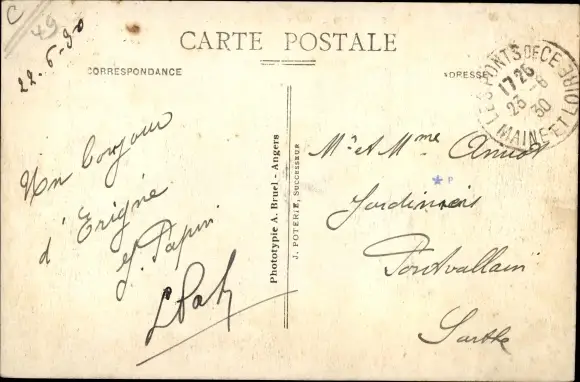 C
49
22-6-30
CARTE POSTALE
CORRESPONDANCE
ADRESSE
LES PONTS DE CE
17 25
23 - 6
30
MAINE ET LOIRE
Un bonjour
d'Erigné
J. Papin
Phototypie A. Bruel - Angers
J. POTERIE, SUCCESSEUR
Mr et Mme
Jardiniers
Pontvallain
Sarthe